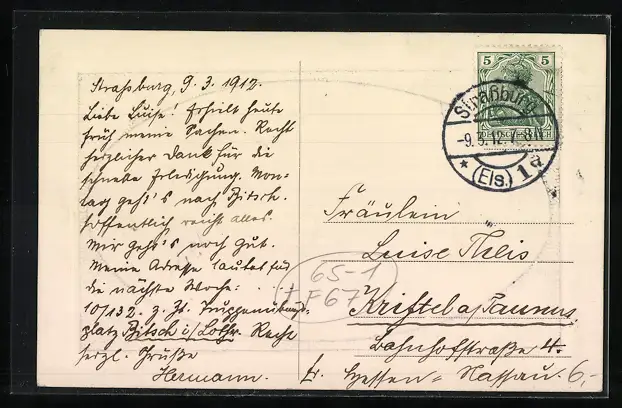 Straßburg, 9.3.1912.
Liebe Luise! Erhielt heute
früh meine Sachen. Recht
herzlicher Dank für die
schnelle Erledigung. Mon-
tag geht's nach Bitsch.
hoffentlich reicht alles.
Mir geht's noch gut.
Meine Adresse lautet für
die nächste Woche:
10/132. z. Zt. Truppenübungs-
platz Bitsch i/Lothr. Recht
herzl. Grüße
Hermann.
5 5
DEUTSCHES REICH
Straßburg
-9.3.12.7-8N
* (Els.) 1d *
Fräulein
Luise
Kriftel a/Taunus
Bahnhofstraße 4.
Hessen = Nassau.
65-1
+F67
6,-